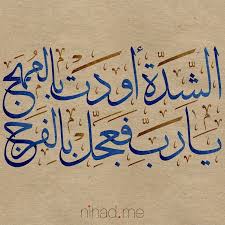 الشدة أودت بالمهج
يا رب فعجل بالفرج
nihad.me